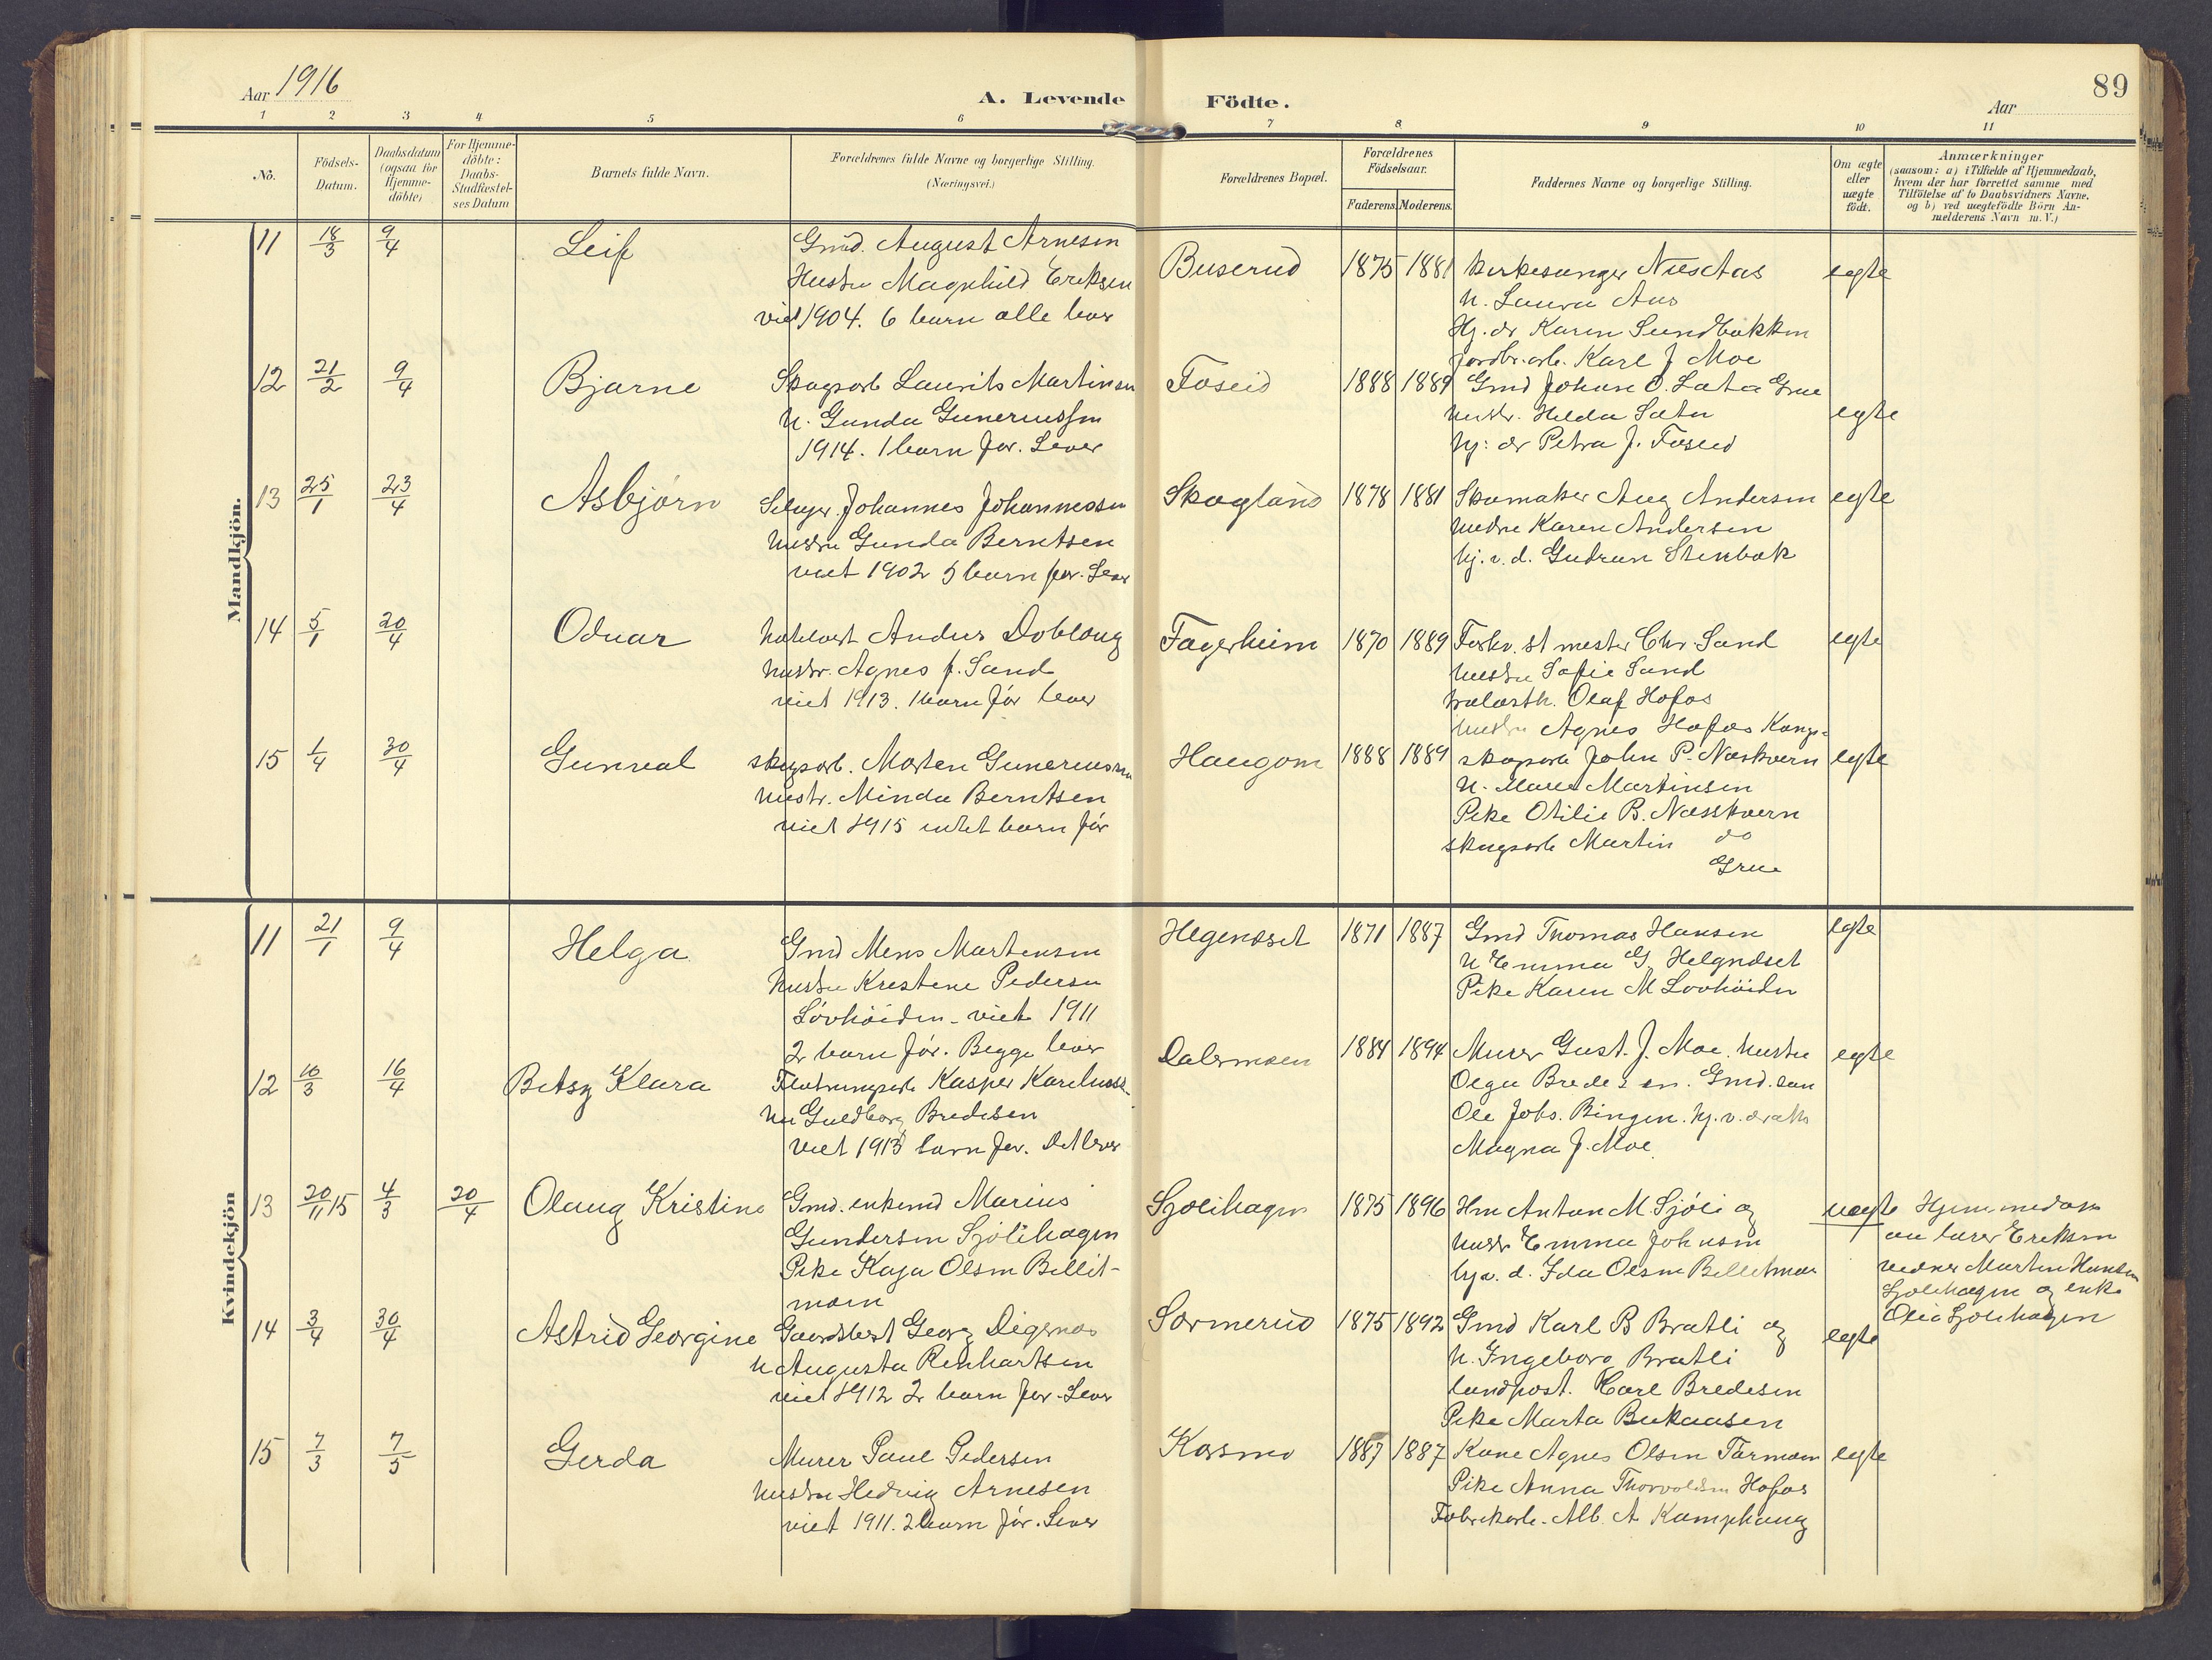 89
Aar 1916
A. Levende Födte.
Aar
1 2 3 4 5 6 7 8 9 10 11
No.
Födsels-Datum.
Daabsdatum (ogsaa for Hjemme-döbte)
For Hjemme-döbte: Daabs-Stadfæstel-ses Datum
Barnets fulde Navn.
Forældrenes fulde Navne og borgerlige Stilling. (Næringsvei.)
Forældrenes Bopæl.
Forældrenes Födselsaar.
Faderens. Moderens.
Faddernes Navne og borgerlige Stilling.
Om ægte eller uægte födt.
Anmærkninger
(saasom: a) i Tilfælde af Hjemmedaab,
hvem der har forrettet samme med
Tilföielse af to Daabsvidners Navne,
og b) ved uægtefödte Börn An-
melderens Navn m. V.)
Mandkjön.
11 18/3 9/4 Leif
Gmd. August Arnesen
Hustru Magnhild Eriksen
viet 1904. 6 barn alle lever
Buserud 1875 1881
kirkesanger Nils Aas
h. Laura Aas
Hj. dr Karen Sundbakken
jordbr. arb. Karl J Moe
egte
12 21/2 9/4 Bjarne
Skogsarb Laurits Martinsen
h. Gunda Guneriussen
1914. 1 barn før. Lever
Foseid 1888 1889
Gmd Johan O. Sata Grue
hustr. Helda Sata
hj: dr Petra J. Foseid
egte
13 25/1 23/4 Asbjørn
Selvejer Johannes Johannessen
hustru Gunda Berntsen
viet 1902 5 barn før. Lever
Skogland 1878 1881
Skomaker Aug Andersen
hustru Karen Andersen
hj. v. d. Gudrun Stenbæk
egte
14 5/1 20/4 Odvar
Anders Dobloug
hustr. Agnes f. Sand
viet 1913. 1 barn før lever
Fagerheim 1870 1889
Forhv. st mester Chr Sand
hustru Sofie Sand
Olaf Hofos
hustru Agnes Hofos Kongs-
egte
15 1/4 30/4 Gunval
skogsarb. Morten Gunerius
hustr. Minda Berntsen
viet 1915 intet barn før
Haugom 1888 1889
skogsarb John P. Næskvern
h. Martinsen
Pike Otilie B. Næsskvern
skogsarb Martin do
Grue
egte
Kvindekjön
11 21/1 9/4 Helga
Gmd Mens Martensen
hustru Krestene Pedersen
Lövhöiden - viet 1911
2 barn før. Begge lever
Hegenæset 1871 1887
Gmd Thomas Hansen
h Emma G Helgnæset
Pike Karen M Lovhöiden
egte
12 16/3 16/4 Betsy Klara
Kasper Kareliuss.
hu Guldborg Bredesen
viet 1913 barn før. Det lever
Dalermoen 1884 1894
Murer Gust. J. Moe. hustru
Olga Bredesen. Gmd. søn
Ole Johs. Bingen. hj. v. datter
Magna J. Moe.
egte
13 20/11 15 4/3 20/4 Olaug Kristine
Gmd. enkemd Marius
Gundersen Sjölihagen
Pike Kaja Olsen Billit-
moen
Sjølihagen 1875 1896
Hm Anton M. Sjöli og
hustr Emma Johnsen
hj v. d. Ida Olsen Billitmoen
uegte
Hjemmedøpt
av lærer Eriksen
vidner Martin Hansen
Sjolihagen og enke
Olia Sjolihagen
14 3/4 30/4 Astrid Georgine
Gaardsbest Georg Digernes
h Augusta Renhartsen
viet 1912 2 barn før. Lever
Sormerud 1875 1892
Gmd Karl B Bratli og
h. Ingeborg Bratli
landpost. Carl Bredesen
Pike Marta Bekaasen
egte
15 7/3 7/5 Gerda
Murer Paul Pedersen
hustru Hedvig Arnesen
viet 1911. 2 barn før. Lever
Kosmo 1887 1887
Kone Agnes Olsen Tarmoen
Pike Anna Thorvoldsen Hofos
Fabrikarb. Alb. A Kamphaug
egte